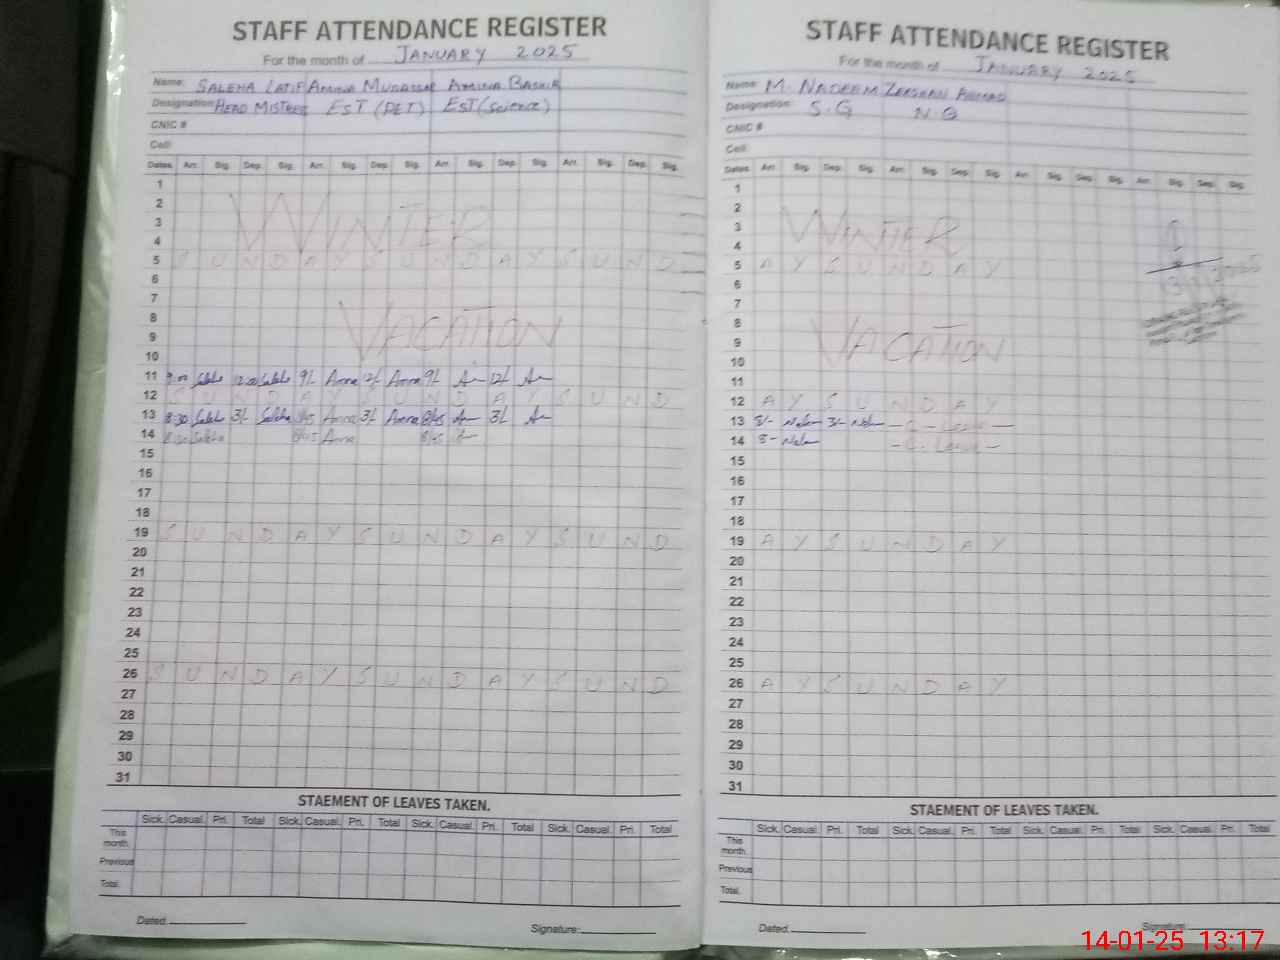 STAFF ATTENDANCE REGISTER
For the month of JANUARY 2025
Name: SALEHA LATIF AMINA MUDASSAR AMINA BASHIR
Designation: HEAD MISTRESS EST (PET) EST (Science)
CNIC #
Cell:
Dates Arr. Sig. Dep. Sig. Arr. Sig. Dep. Sig. Arr. Sig. Dep. Sig. Arr. Sig. Dep. Sig.
1
2
WINTER
3
4
5 S U N D A Y S U N D A Y S U N D
6
7
8
VACATION
9
10
11 9:00 Saleha 12:00 Saleha 9/- Amna 12/- Amna 9/- 12/-
12 S U N D A Y S U N D A Y S U N D
13 8:30 Saleha 3/- Saleha 8/45 Amna 3/- Amna 8/45 3/-
14 8:30 Saleha 8/45 Amna 8/45
15
16
17
18
19 S U N D A Y S U N D A Y S U N D
20
21
22
23
24
25
26 S U N D A Y S U N D A Y S U N D
27
28
29
30
31
STAEMENT OF LEAVES TAKEN.
Sick. Casual. Pri. Total Sick. Casual. Pri. Total Sick. Casual. Pri. Total Sick. Casual. Pri. Total
This month.
Previous
Total.
Dated. Signature:
STAFF ATTENDANCE REGISTER
For the month of JANUARY 2025
Name: M. NADEEM ZEESHAN AHMAD
Designation: S.G N.Q
CNIC #
Cell:
Dates Arr. Sig. Dep. Sig. Arr. Sig. Dep. Sig. Arr. Sig. Dep. Sig. Arr. Sig. Dep. Sig.
1
2
WINTER
3
4
5 A Y S U N D A Y
6
7
8
VACATION
9
10
11
12 A Y S U N D A Y
13 8/- 3/- - C - Leave -
14 8- - C - Leave -
15
16
17
18
19 A Y S U N D A Y
20
21
22
23
24
25
26 A Y S U N D A Y
27
28
29
30
31
STAEMENT OF LEAVES TAKEN.
Sick. Casual. Pri. Total Sick. Casual. Pri. Total Sick. Casual. Pri. Total Sick. Casual. Pri. Total
This month.
Previous
Total.
Dated. Signature:
14-01-25 13:17